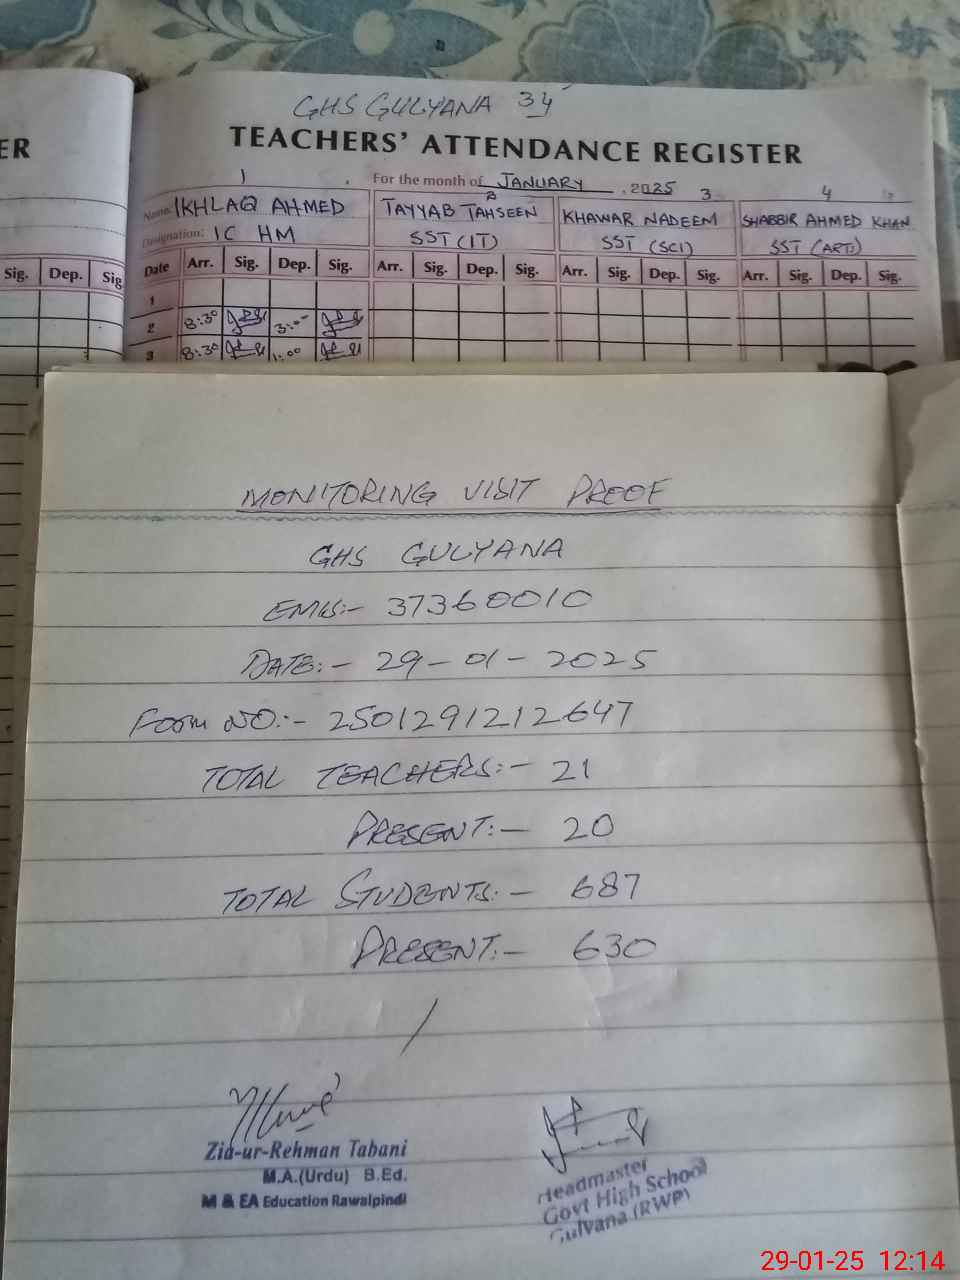 GHS GULYANA 34
ER
TEACHERS' ATTENDANCE REGISTER
For the month of JANUARY, 2025
1 2 3 4
Name: IKHLAQ AHMED TAYYAB TAHSEEN KHAWAR NADEEM SHABBIR AHMED KHAN
Designation: IC HM SST (IT) SST (SCI) SST (ART)
Sig. Dep. Sig Date Arr. Sig. Dep. Sig. Arr. Sig. Dep. Sig. Arr. Sig. Dep. Sig. Arr. Sig. Dep. Sig.
1
2 8:30 3:00
3 8:30 1:00
MONITORING VISIT PROOF
GHS GULYANA
EMIS:- 37360010
DATE:- 29-01-2025
Form NO.:- 2501291212647
TOTAL TEACHERS:- 21
PRESENT:- 20
TOTAL STUDENTS:- 687
PRESENT:- 630
Zia-ur-Rehman Tabani
M.A.(Urdu) B.Ed.
M & EA Education Rawalpindi
Headmaster
Govt High School
Gulyana (RWP)
29-01-25 12:14